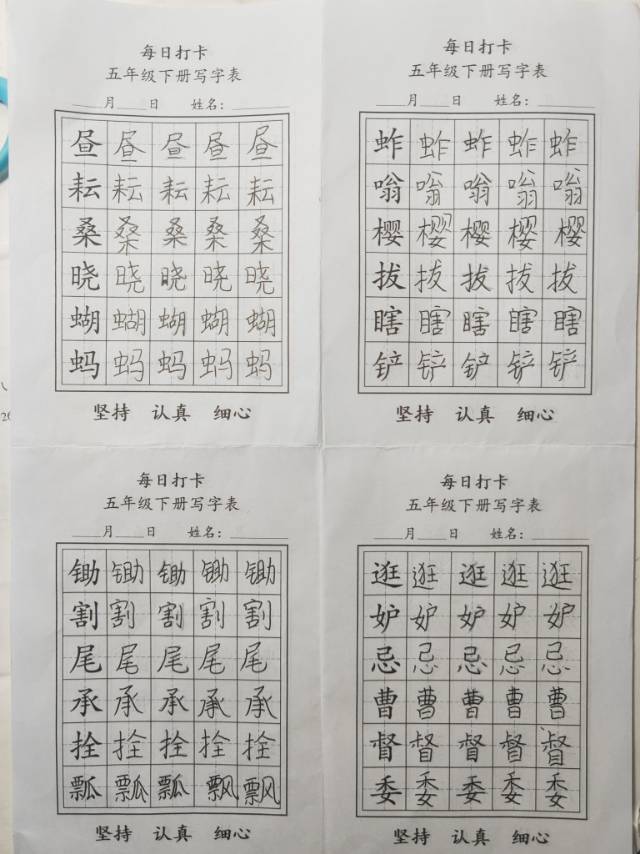 每日打卡
五年级下册写字表
____月____日 姓名：________
昼 昼 昼 昼 昼
耘 耘 耘 耘 耘
桑 桑 桑 桑 桑
晓 晓 晓 晓 晓
蝴 蝴 蝴 蝴 蝴
蚂 蚂 蚂 蚂 蚂
坚持 认真 细心
每日打卡
五年级下册写字表
____月____日 姓名：________
蚱 蚱 蚱 蚱 蚱
嗡 嗡 嗡 嗡 嗡
樱 樱 樱 樱 樱
拔 拔 拔 拔 拔
瞎 瞎 瞎 瞎 瞎
铲 铲 铲 铲 铲
坚持 认真 细心
每日打卡
五年级下册写字表
____月____日 姓名：________
锄 锄 锄 锄 锄
割 割 割 割 割
尾 尾 尾 尾 尾
承 承 承 承 承
拴 拴 拴 拴 拴
瓢 瓢 瓢 飘 飘
坚持 认真 细心
每日打卡
五年级下册写字表
____月____日 姓名：________
逛 逛 逛 逛 逛
妒 妒 妒 妒 妒
忌 忌 忌 忌 忌
曹 曹 曹 曹 曹
督 督 督 督 督
委 委 委 委 委
坚持 认真 细心